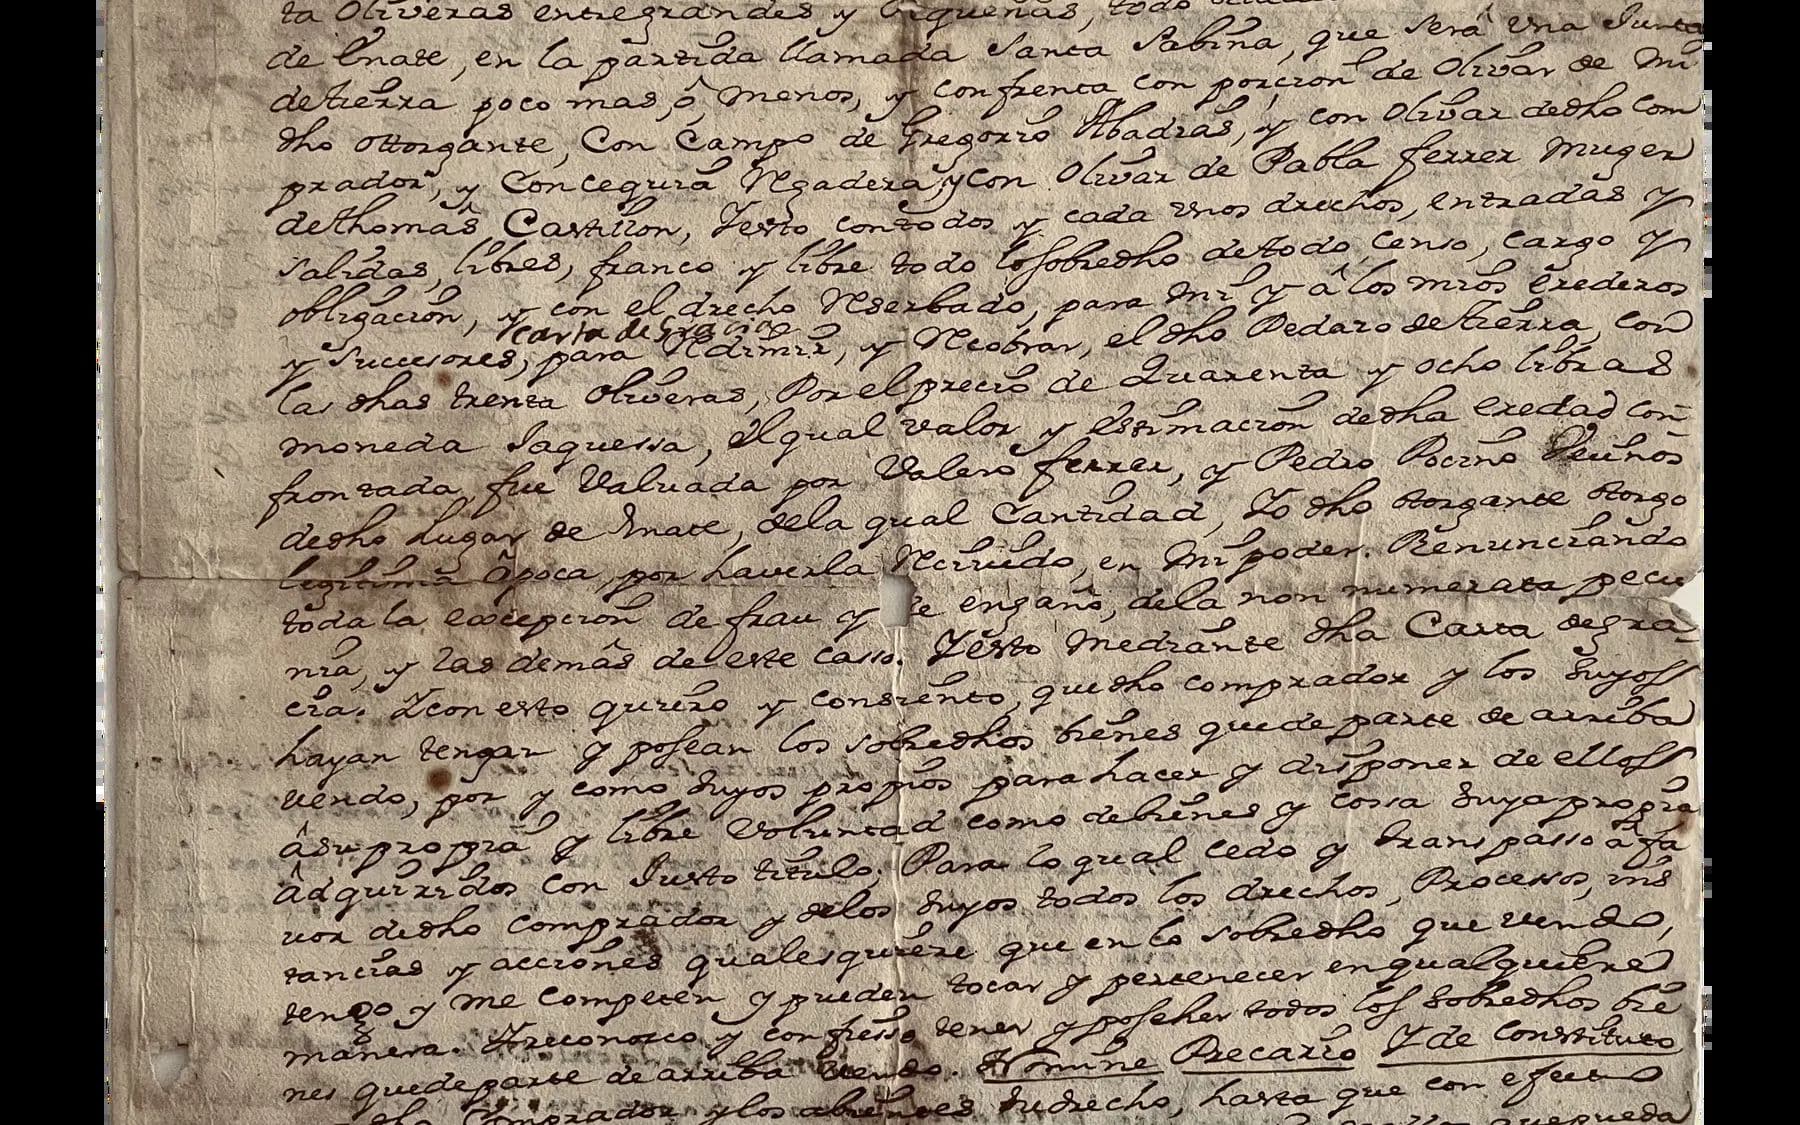 ta Oliveras entregrandes y Piqueñas, todo
de Enate, en la partida llamada Santa Sabina, que será una Junta
detierra poco mas, ó menos, y confrenta con porcion de Olivar de Mi
dho ottorgante, Con Campo de Gregorio Abadias, y con Olivar dedho Com
prador, y Concequia Regadera, y con Olivar de Pabla Ferrer Muger
dethomas Castillon, Y esto contodos y cada unos drechos, entradas y
salidas, libres, franco y libre todo losobredho detodo censo, cargo y
obligacion, y con el drecho Reserbado, para Mi y á los mios Erederos
carta de Gracia
y Successores, para Redimir, y Recobrar, el dho Pedazo detierra, con
las dhas trenta Oliveras, Por el precio de Quarenta y ocho libras
moneda Jaquessa, el qual valor y estimacion dedha eredad con
frontada, fue Valuada por Valero ferrer, y Pedro Pocino Vecinos
dedho Lugar de Enate, dela qual Cantidad, Yo dho otorgante otorgo
legitima Apoca, por haverla Recivido, en Mi poder. Renunciando
toda la excepcion de frau y de engaño, dela non numerata pecu
nia, y las demás de este casso. Y esto Mediante dha Carta degra
cia. Y con esto quiero y consiento, quedho comprador y los suyos
hayan tengan y posean los sobredhos bienes que de parte de arriba
vendo, por y como suyos propios para hacer y disponer de ellos
ásu propria y libre Voluntad como debienes y cossa suya propria
ádquiridos con Justo titulo; Para lo qual cedo y transpasso á fa
vor dedho comprador y delos suyos todos los drechos, Processos, ins
tancias y acciones qualesquiere que en lo sobredho que vendo,
tengo y me competen y pueden tocar y pertenecer en qualquiere
manera. Y reconozco y confiesso tener y poseher todos los sobredhos bie
nes que de parte de arriba vendo. Nomine Precario Y de Constituto
dho Comprador y los suyos sudrecho, hasta que con efecto
quepueda